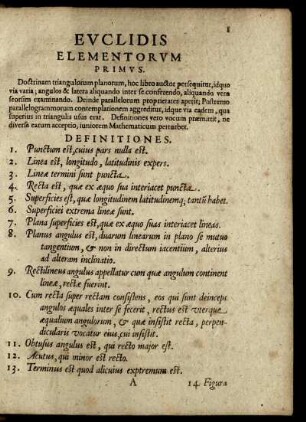 1
EVCLIDIS
ELEMENTORVM
PRIMVS.
Doctrinam triangulorum planorum, hoc libro auctor persequitur, idquo
via varia, angulos & latera aliquando inter se conferendo, aliquando vero
seorsim examinando. Deinde parallelorum proprietates aperit; Postremo
parallelogrammorum contemplationem aggreditur, idque via eadem, qua
superius in triangulis usus erat. Definitiones vero vocum præmittit, ne
diversa earum acceptio, tyronem Mathematicum perturbet.
DEFINITIONES.
1. Punctum est, cuius pars nulla est.
2. Linea est, longitudo, latitudinis expers.
3. Lineæ termini sunt puncta.
4. Recta est, quæ ex æquo sua interiacet puncta.
5. Superficies est, quæ longitudinem latitudinemq; tantū habet.
6. Superficiei extrema lineæ sunt.
7. Plana superficies est, quæ ex æquo suas interiacet lineas.
8. Planus angulus est, duarum linearum in plano se mutuo
tangentium, & non in directum iacentium, alterius
ad alteram inclinatio.
9. Rectilineus angulus appellatur cum quæ angulum continent
lineæ, rectæ fuerint.
10. Cum recta super rectam consistens, eos qui sunt deinceps
angulos æquales inter se fecerit, rectus est uterque
æqualium angulorum, & quæ insistit recta, perpen-
dicularis vocatur eius, cui insistit.
11. Obtusus angulus est, qui recto major est.
12. Acutus, qui minor est recto.
13. Terminus est quod alicuius extremum est.
A 14. Figura